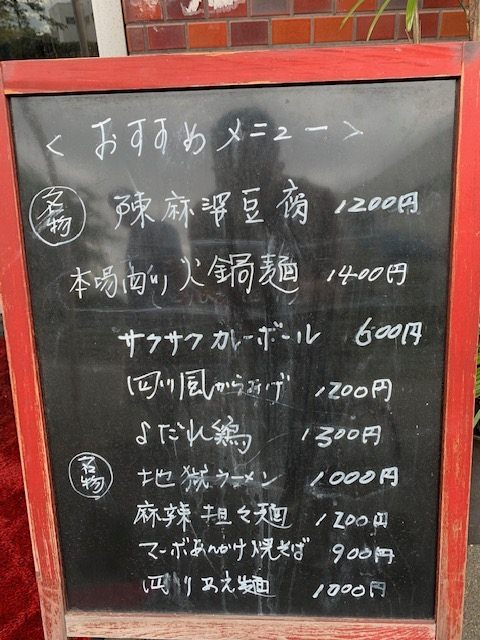 ＜おすすめメニュー＞
名物 陳麻婆豆腐 1200円
本場四川火鍋麺 1400円
サクサクカレーボール 600円
四川風からあげ 1200円
よだれ鶏 1300円
名物 地獄ラーメン 1000円
麻辣担々麺 1200円
マーボあんかけ焼そば 900円
四川あえ麺 1000円